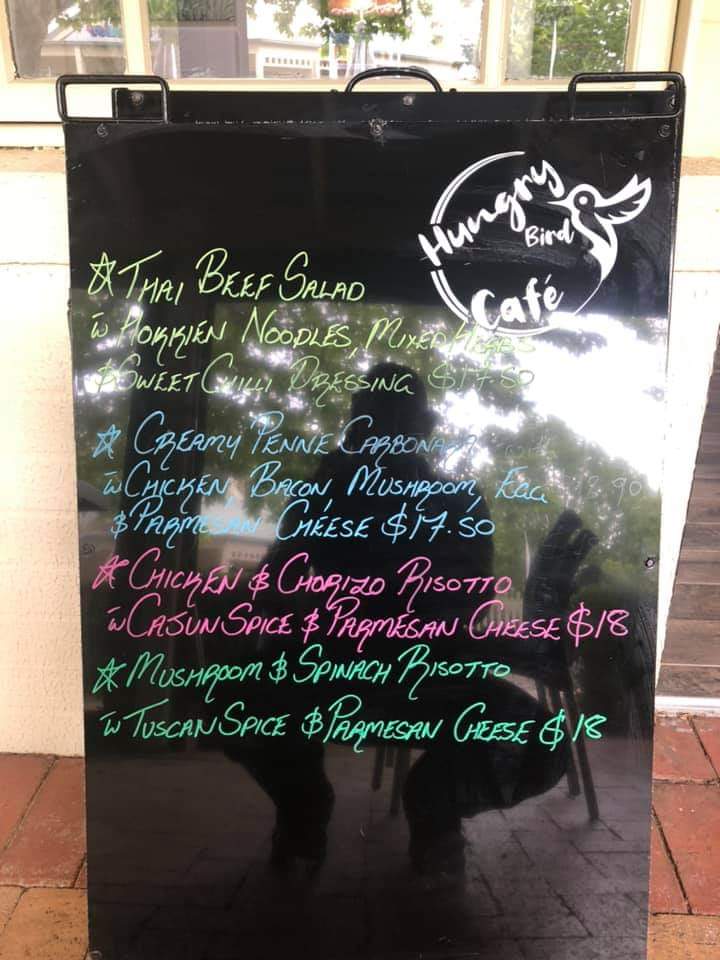 Hungry
Bird
Café
☆ THAI BEEF SALAD
w̄ HOKKIEN NOODLES, MIXED HERBS
& SWEET CHILLI DRESSING $17.50
☆ CREAMY PENNE CARBONARA
w̄ CHICKEN, BACON, MUSHROOM, EGG
& PARMESAN CHEESE $17.50
☆ CHICKEN & CHORIZO RISOTTO
w̄ CAJUN SPICE & PARMESAN CHEESE $18
☆ MUSHROOM & SPINACH RISOTTO
w̄ TUSCAN SPICE & PARMESAN CHEESE $18